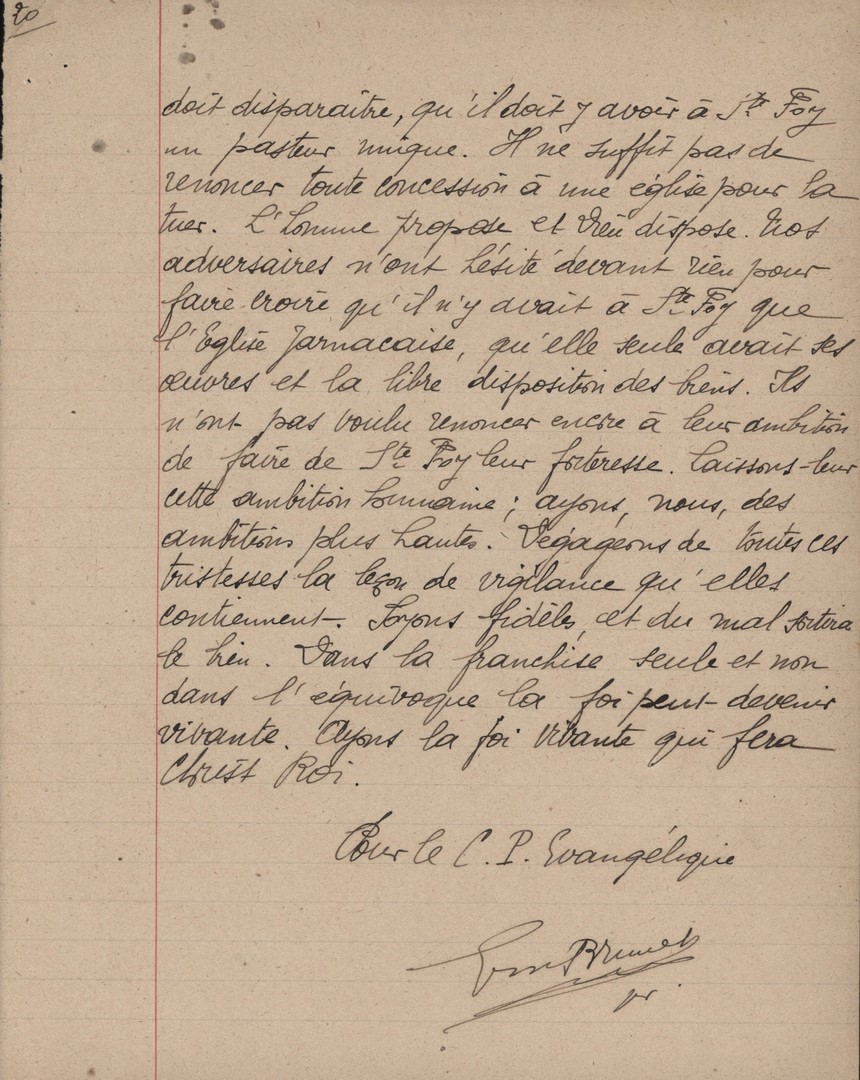 20
doit disparaître, qu'il doit y avoir à Ste Foy
un pasteur unique. Il ne suffit pas de
renoncer toute concession à une église pour la
tuer. L'homme propose et Dieu dispose. Nos
adversaires n'ont hésité devant rien pour
faire croire qu'il n'y avait à Ste Foy que
l'Eglise Jarnacaise, qu'elle seule avait ses
œuvres et la libre disposition des biens. Ils
n'ont pas voulu renoncer encre à leur ambition
de faire de Ste Foy leur forteresse. Laissons-leur
cette ambition humaine ; ayons, nous, des
ambitions plus hautes. Dégageons de toutes ces
tristesses la leçon de vigilance qu'elles
contiennent. Soyons fidèles, et du mal sortira
le bien. Dans la franchise seule et non
dans l'équivoque la foi peut devenir
vivante. Ayons la foi vivante qui fera
Christ Roi.
Pour le C. P. Evangélique
Brunet
pr.